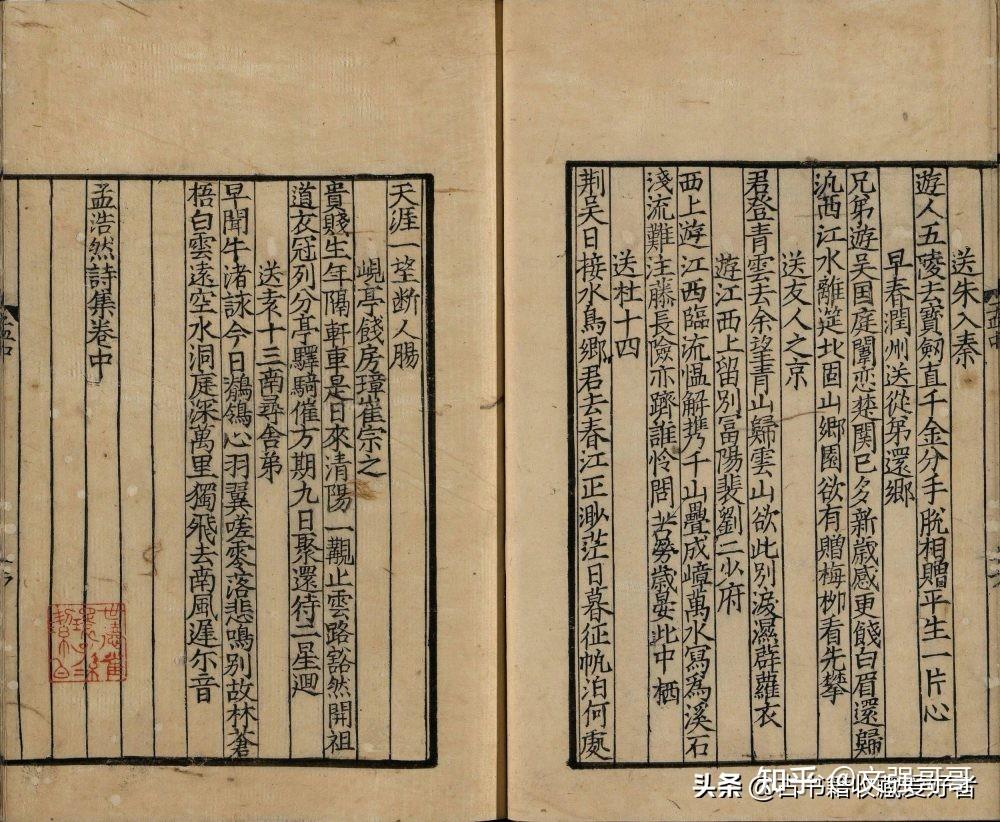 送朱入秦
遊人五陵去寶劍直千金分手脫相贈平生一片心
早春潤州送從弟還鄉
兄弟遊吴国庭闈恋楚関已多新歳感更餞白眉還歸
泛西江水離筵北固山鄉園欲有贈梅柳看先攀
送友人之京
君登青雲去余望青山歸雲山欲此别淚濕薜蘿衣
遊江西上留别富陽裴劉二少府
西上遊江西臨流愠解携千山疊成嶂萬水寫為溪石
淺流難注藤長險亦躋誰怜問苦勞歳晏此中栖
送杜十四
荆吴日接水鳥鄉君去春江正渺茫日暮征帆泊何處
天涯一望断人腸
峴亭餞房璋崔宗之
貴賤生年隔軒車是日來清陽一覯止雲路豁然開祖
道衣冠列分亭驛騎催方期九日聚還待二星迴
送袁十三南尋舎弟
早聞牛渚詠今日鶺鴒心羽翼嗟零落悲鳴别故林蒼
梧白雲遠空水洞庭深萬里獨飛去南風遲尓音
孟浩然詩集卷中
头条 @古书籍收藏爱好者
知乎 @文强哥哥